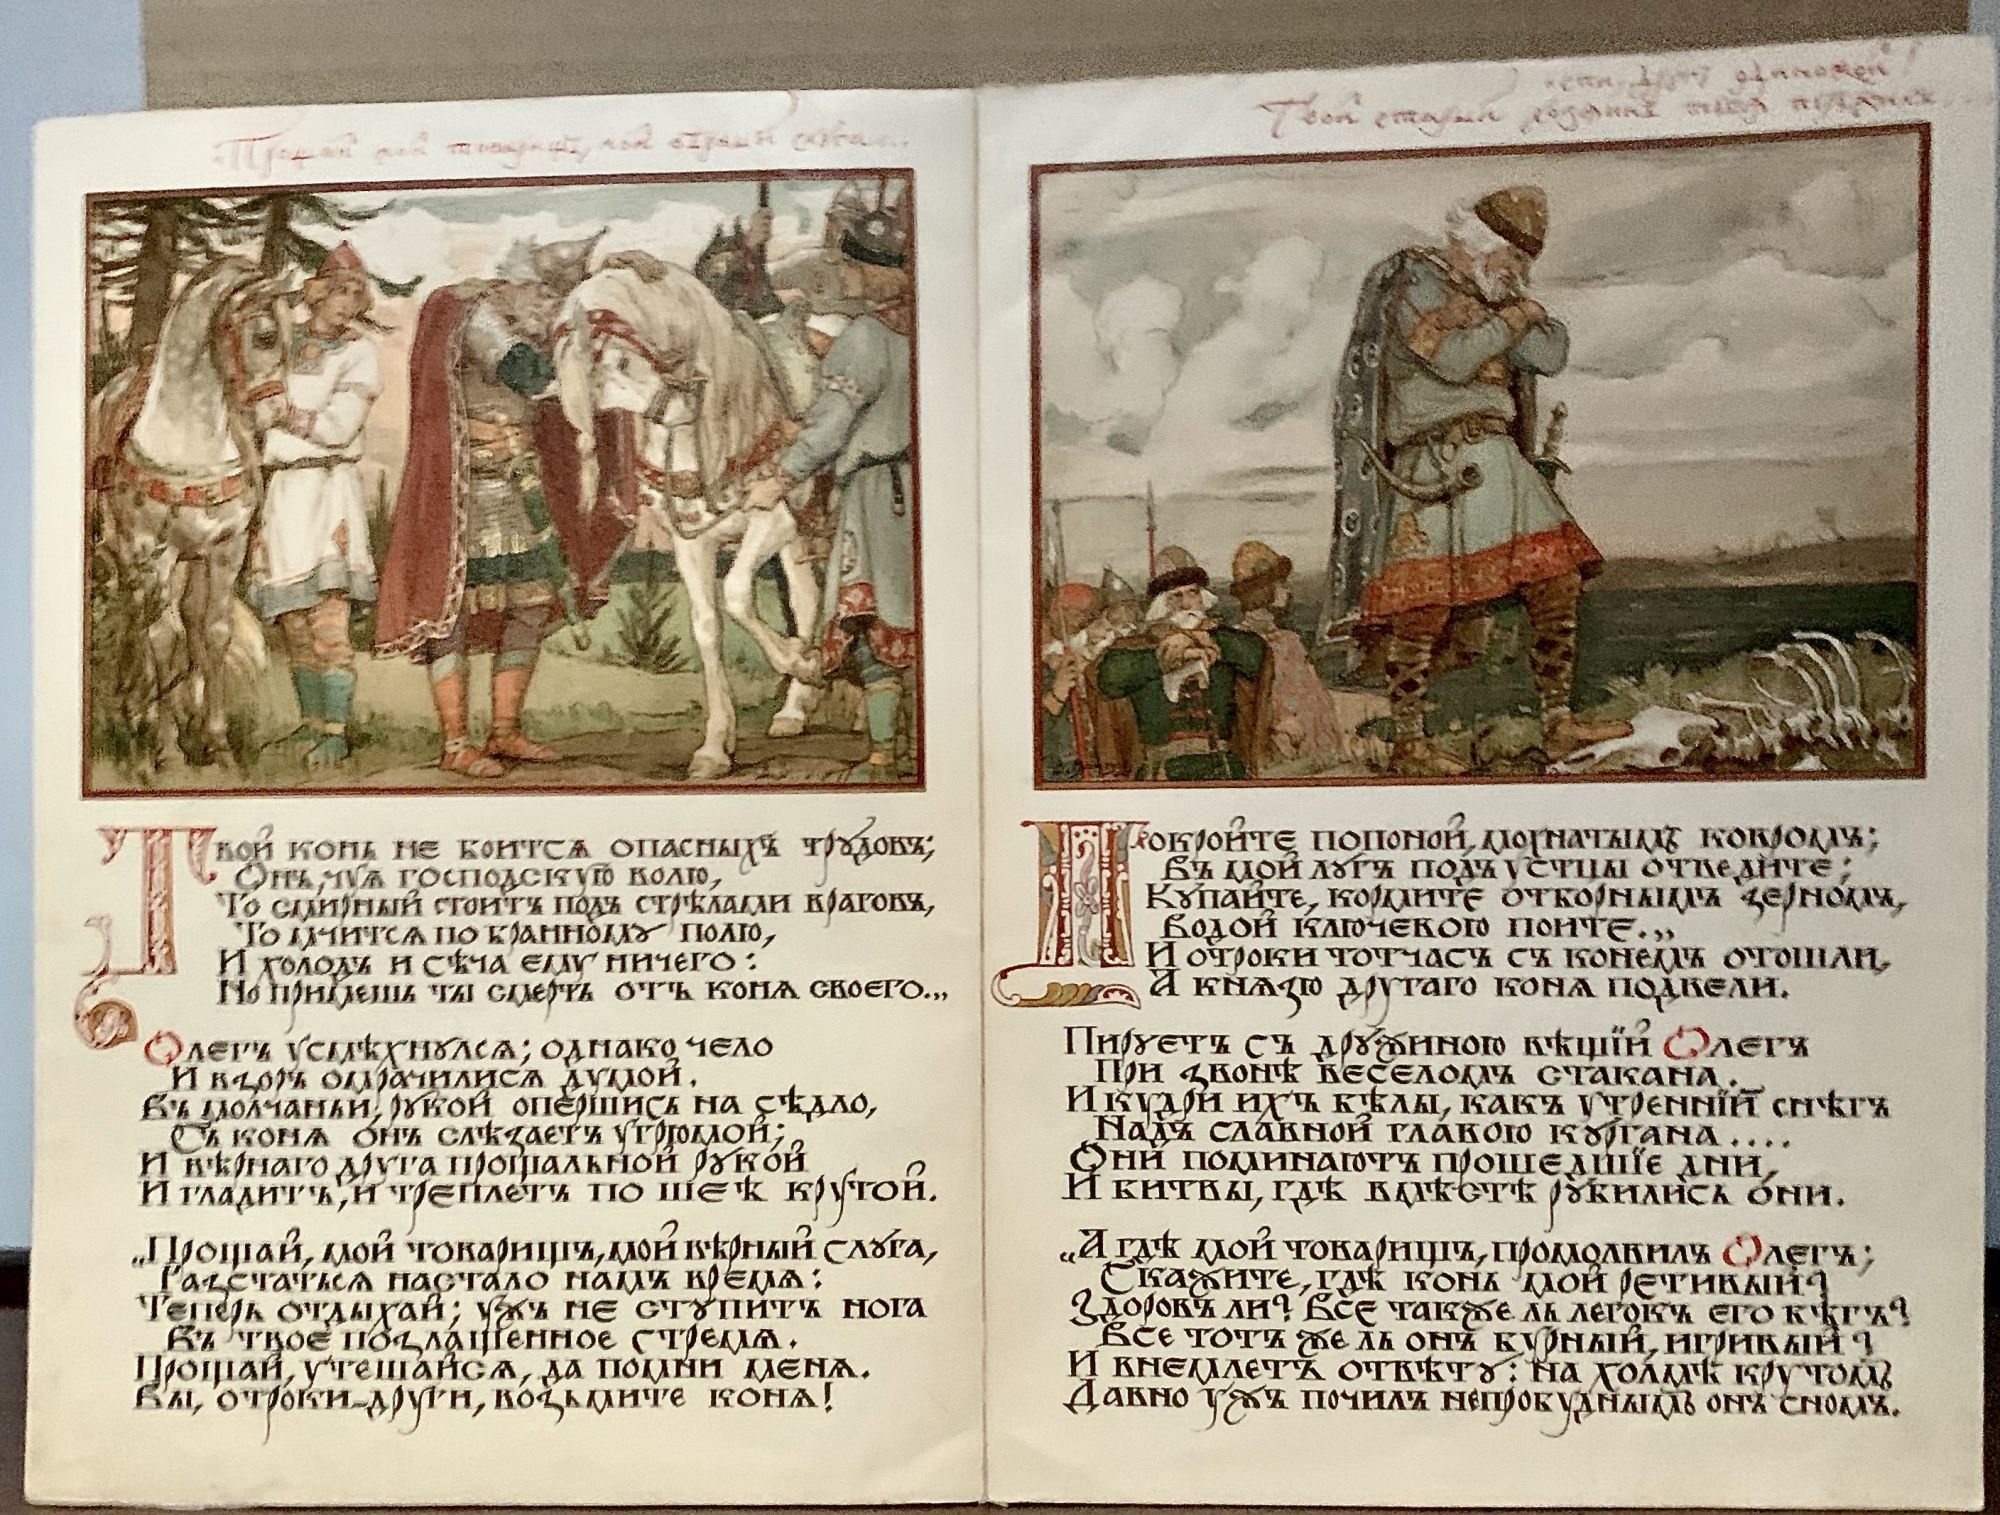 „Прощай мой товарищъ, мой вѣрный слуга...
Твой конь не боится опасныхъ трудовъ;
Онъ, чуя господскую волю,
То смирный стоитъ подъ стрѣлами враговъ,
То мчится по бранному полю,
И холодъ и сѣча ему ничего:
Но примешь ты смерть отъ коня своего...
Олегъ усмѣхнулся; однако чело
И взоръ омрачилися думой.
Въ молчаньи, рукой опершись на сѣдло,
Съ коня онъ слѣзаетъ угрюмой;
И вѣрнаго друга прощальной рукой
И гладитъ, и треплетъ по шеѣ крутой.
„Прощай, мой товарищъ, мой вѣрный слуга,
Разстаться настало намъ время:
Теперь отдыхай; ужъ не ступитъ нога
Въ твое позлащенное стремя.
Прощай, утешайся, да помни меня.
Вы, отроки-други, возьмите коня!
спи, другъ одинокой!
Твой старый хозяинъ тебя пережилъ
Покройте попоной, мохнатымъ ковромъ;
Въ мой лугъ подъ устцы отведите;
Купайте, кормите отборнымъ зерномъ,
Водой ключевою поите...
И отроки тотчасъ съ конемъ отошли,
А князю другаго коня подвели.
Пируетъ съ дружиною вѣщій Олегъ
При звонѣ веселомъ стакана.
И кудри ихъ бѣлы, какъ утренній снѣгъ
Надъ славной главою кургана....
Они поминаютъ прошедшіе дни,
И битвы, гдѣ вмѣстѣ рубились они.
„А гдѣ мой товарищъ, промолвилъ Олегъ;
Скажите, гдѣ конь мой ретивый?
Здоровъ ли? Все такъ же ль легокъ его бѣгъ?
Все тотъ же ль онъ бурный, игривый?
И внемлетъ отвѣту: на холмѣ крутомъ
Давно ужъ почилъ непробуднымъ онъ сномъ.